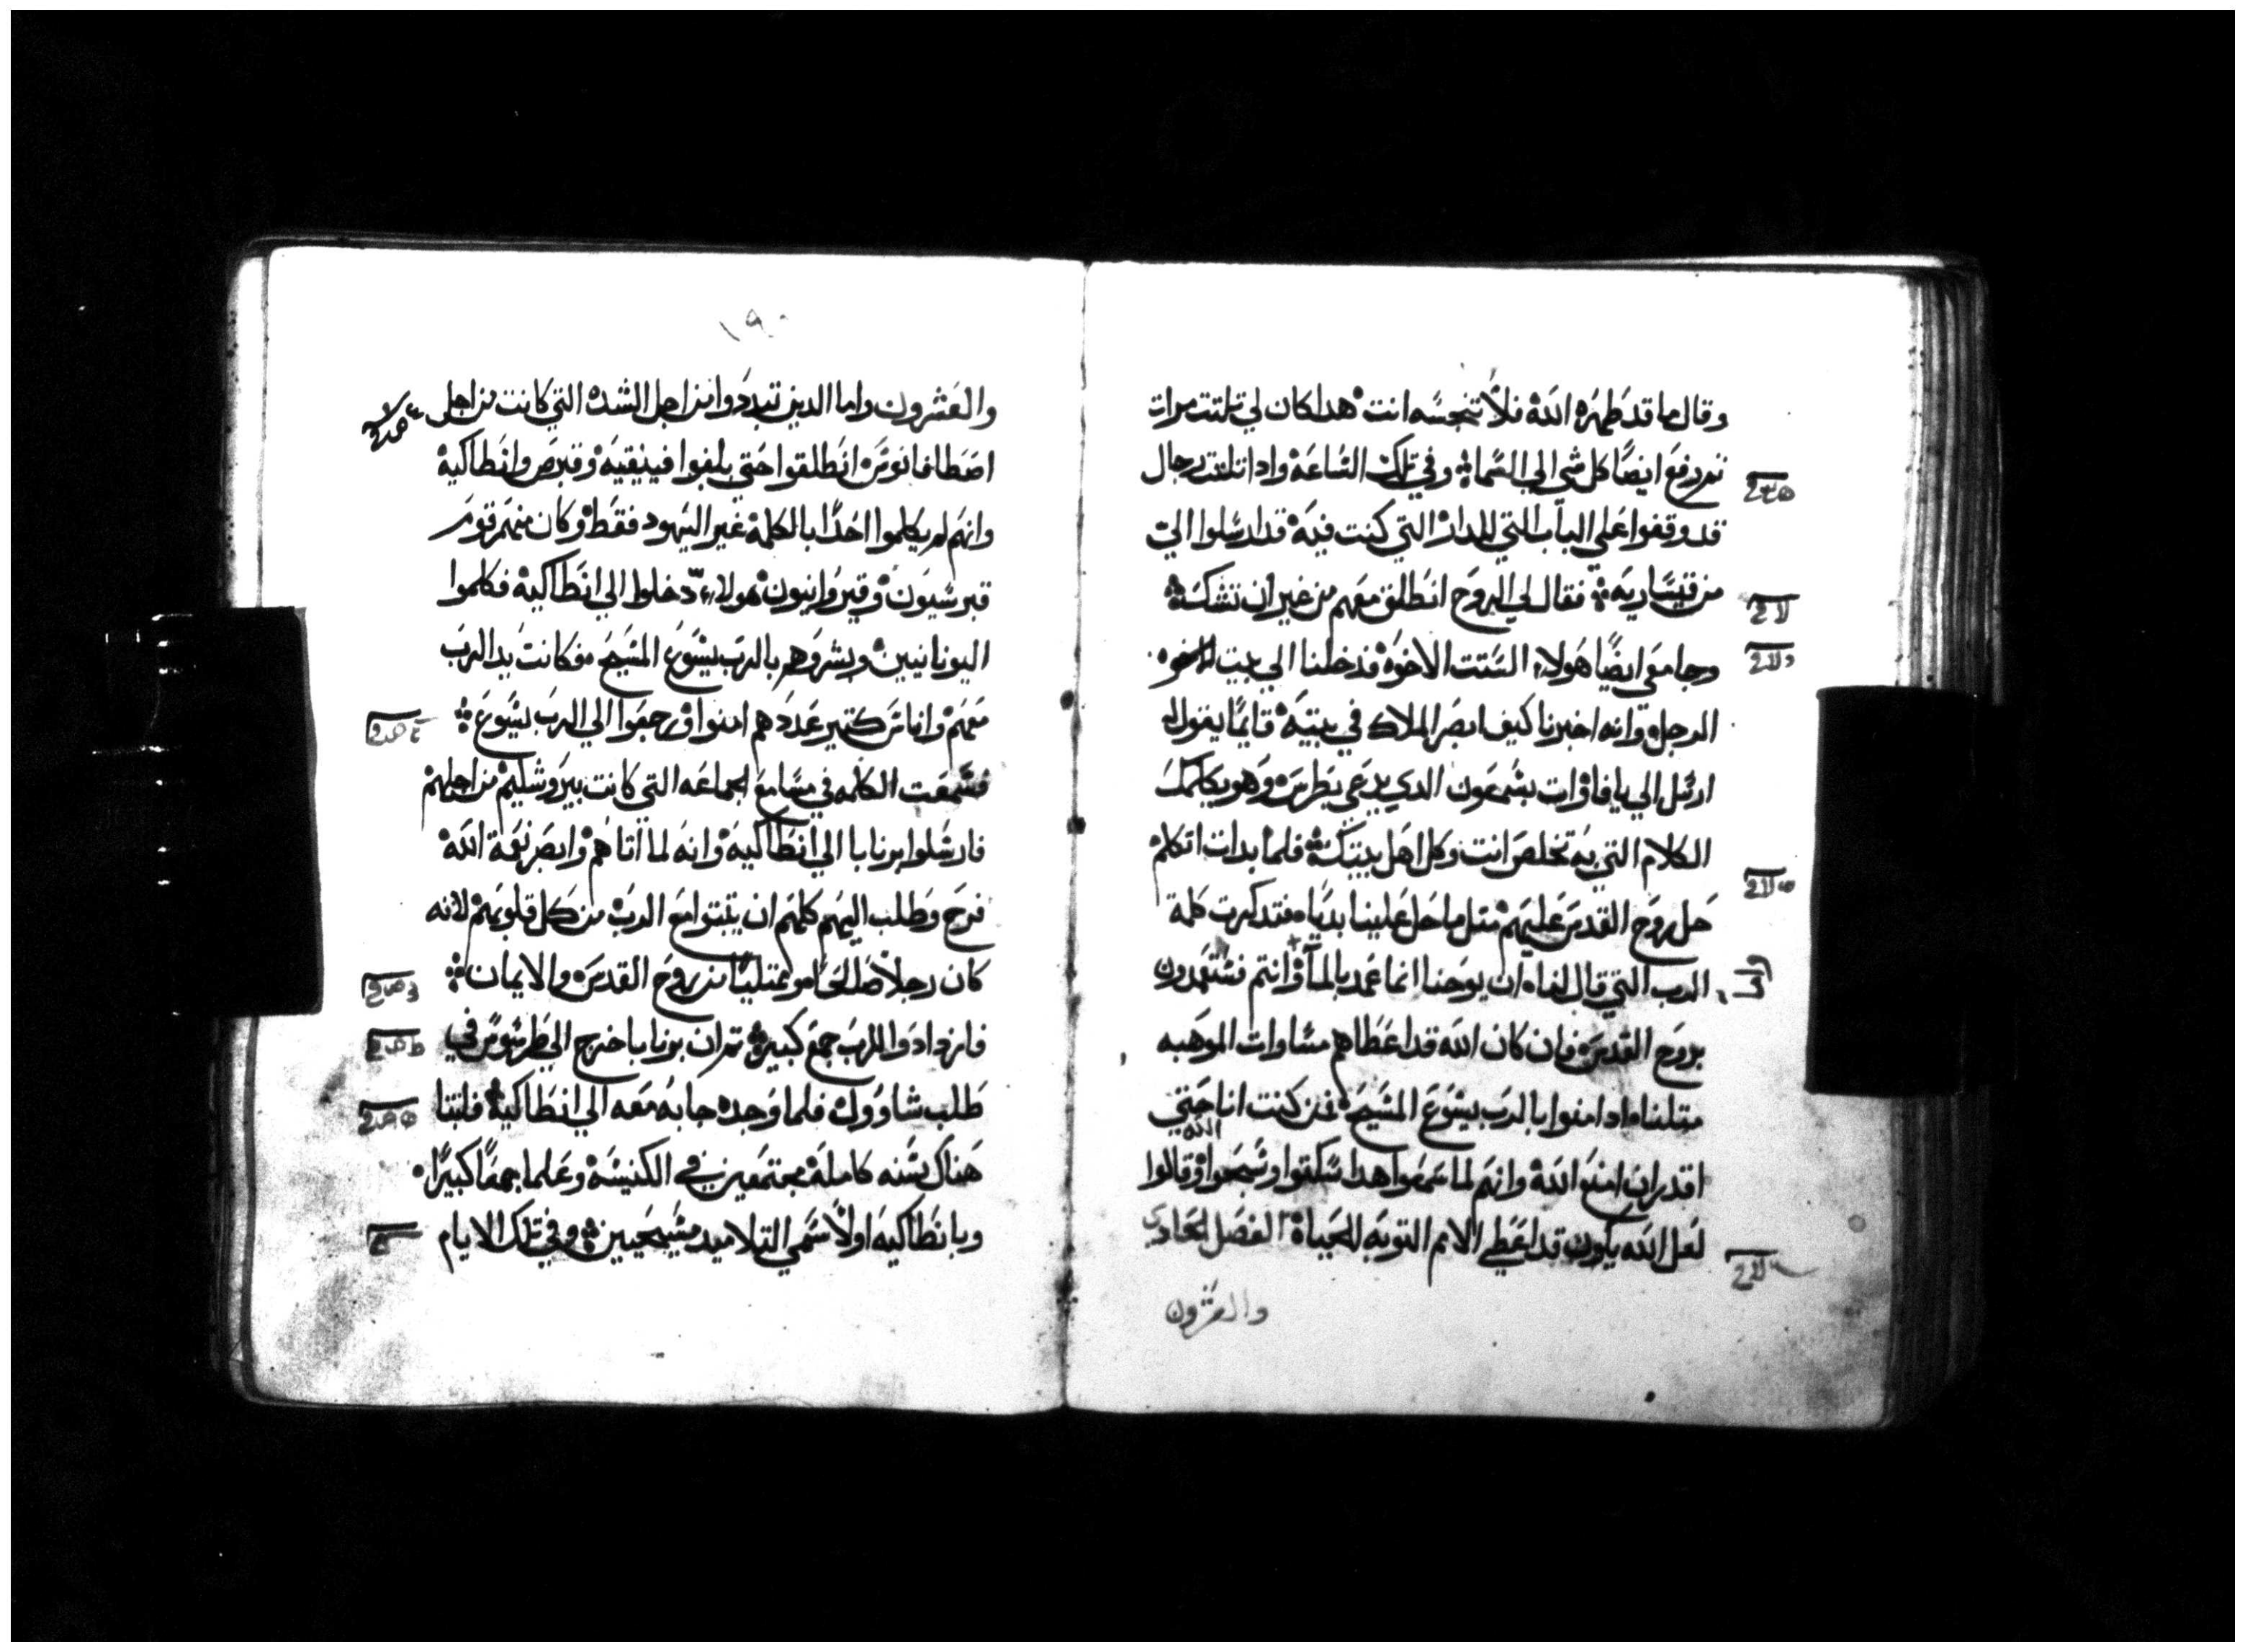 وقال ما قد طهره الله فلا تنجسه انت هدا كان لي تلتت مرات
تم رفع ايضًا كل شي الي السما وفي تلك الساعة وادا تلتت رجال
قد وقفوا علي الباب التي للدار التي كنت فيه قد ارسلوا الي
من قيساريه فقال لي الروح انطلق معهم من غير ان تشك
وجا معي ايضًا هولاء الستت الاخوه فدخلنا الي بيت
الرجل وانه اخبرنا كيف ابصر الملاك في بيته قايمًا يقول له
ارسل الي يافا وات بشمعون الدي يدعي بطرس وهو يكلمك
الكلام التي به تخلص انت وكل اهل بيتك فلما بدات اتكلم
حل روح القدس عليهم متل ما حل علينا بديا فتدكرت كلمة
الرب التي قال لنا ان يوحنا انما عمد بالمآ وانتم فستعمدون
بروح القدس فان كان الله قد اعطاهم مساوات الموهبه
متلنا ادا امنوا بالرب يسوع المسيح فمن كنت انا حتي
اقدر ان امنع الله وانهم لما سمعوا هدا سكتوا وسبحوا الله وقالوا
لعل الله يكون قد اعطي الامم التوبه للحياة الفصل الحادي
والعشرون
١٩٠
والعشرون واما الدين تبددوا من اجل الشده التي كانت من اجل
اصطافانوس انطلقوا حتي بلغوا فينيقيه وقبرص وانطاكية
وانهم لم يكلموا احدًا بالكلمة غير اليهود فقط وكان منهم قوم
قبرسيون وقيروانيون هولاء دخلوا الي انطاكية فكلموا
اليونانيين وبشروهم بالرب يسوع المسيح فكانت يد الرب
معهم واناس كتير عددهم امنوا ورجعوا الي الرب يسوع
فسمعت الكلمه في مسامع الجماعه التي كانت بيروشليم من اجلهم
فارسلوا برنابا الي انطاكية وانه لما اتاهم وابصر نعمة الله
فرح وطلب اليهم كلهم ان يتبتوا مع الرب من كل قلوبهم لانه
كان رجلًا صالحًا ممتليًا من روح القدس والايمان
فازدادوا للرب جمع كبير تم ان برنابا خرج الي طرسوس في
طلب شاوول فلما وجده جا به معه الي انطاكية فلبتا
هناك سنه كاملة مجتمعين في الكنيسة وعلما جمعًا كبيرًا
وبانطاكيه اولًا سمي التلاميد مسيحيين وفي تلك الايام